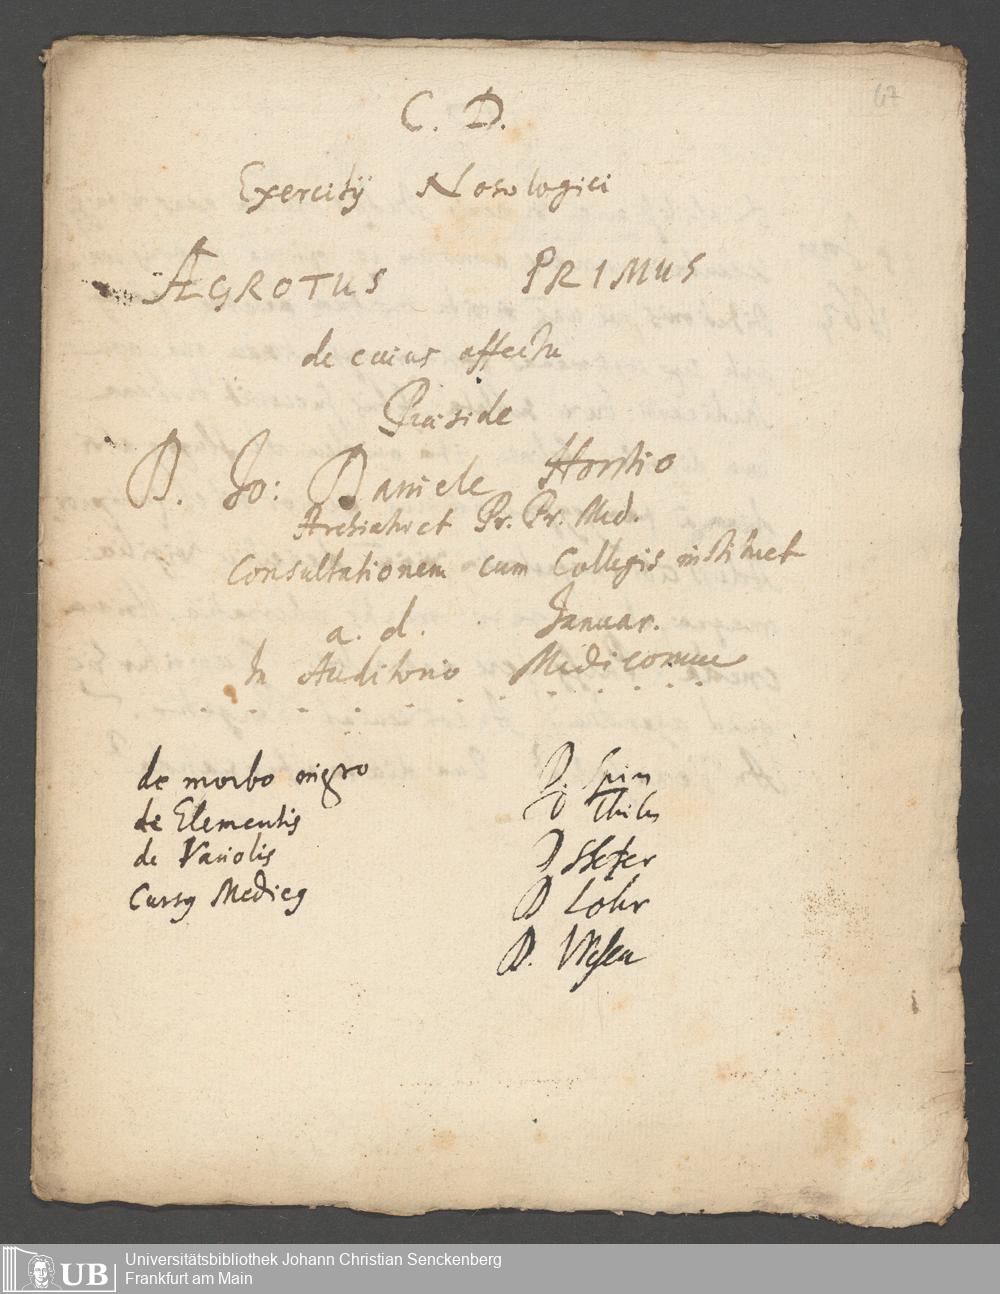 67
C. D.
Exercitij Nosologici
ÆGROTUS PRIMUS
de cuius affectu
Præside
D. Jo: Daniele Horstio
Archiatro et Pr. Pr. Med.
Consultationem cum Collegis instituet
a. d. Januar.
In Auditorio Medicorum
de morbo nigro
D. Spin
de Elementis
D Thiles
de Variolis
D
Cursq Medicq
D Lohr
D.
UB
Universitätsbibliothek Johann Christian Senckenberg
Frankfurt am Main